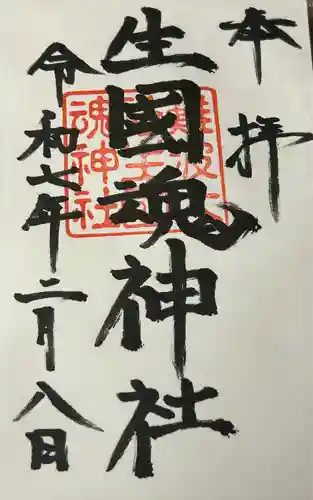 奉拝
生國魂神社
令和七年二月八日
難波
生國
魂神社